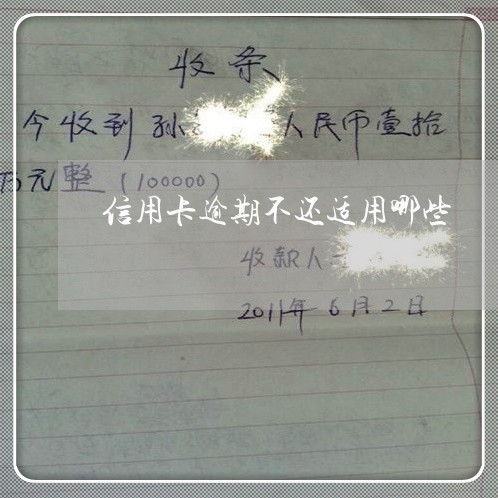 收条
今收到孙 人民币壹拾
万元整(100000)
信用卡逾期不还适用哪些
收款人
2011年6月2日